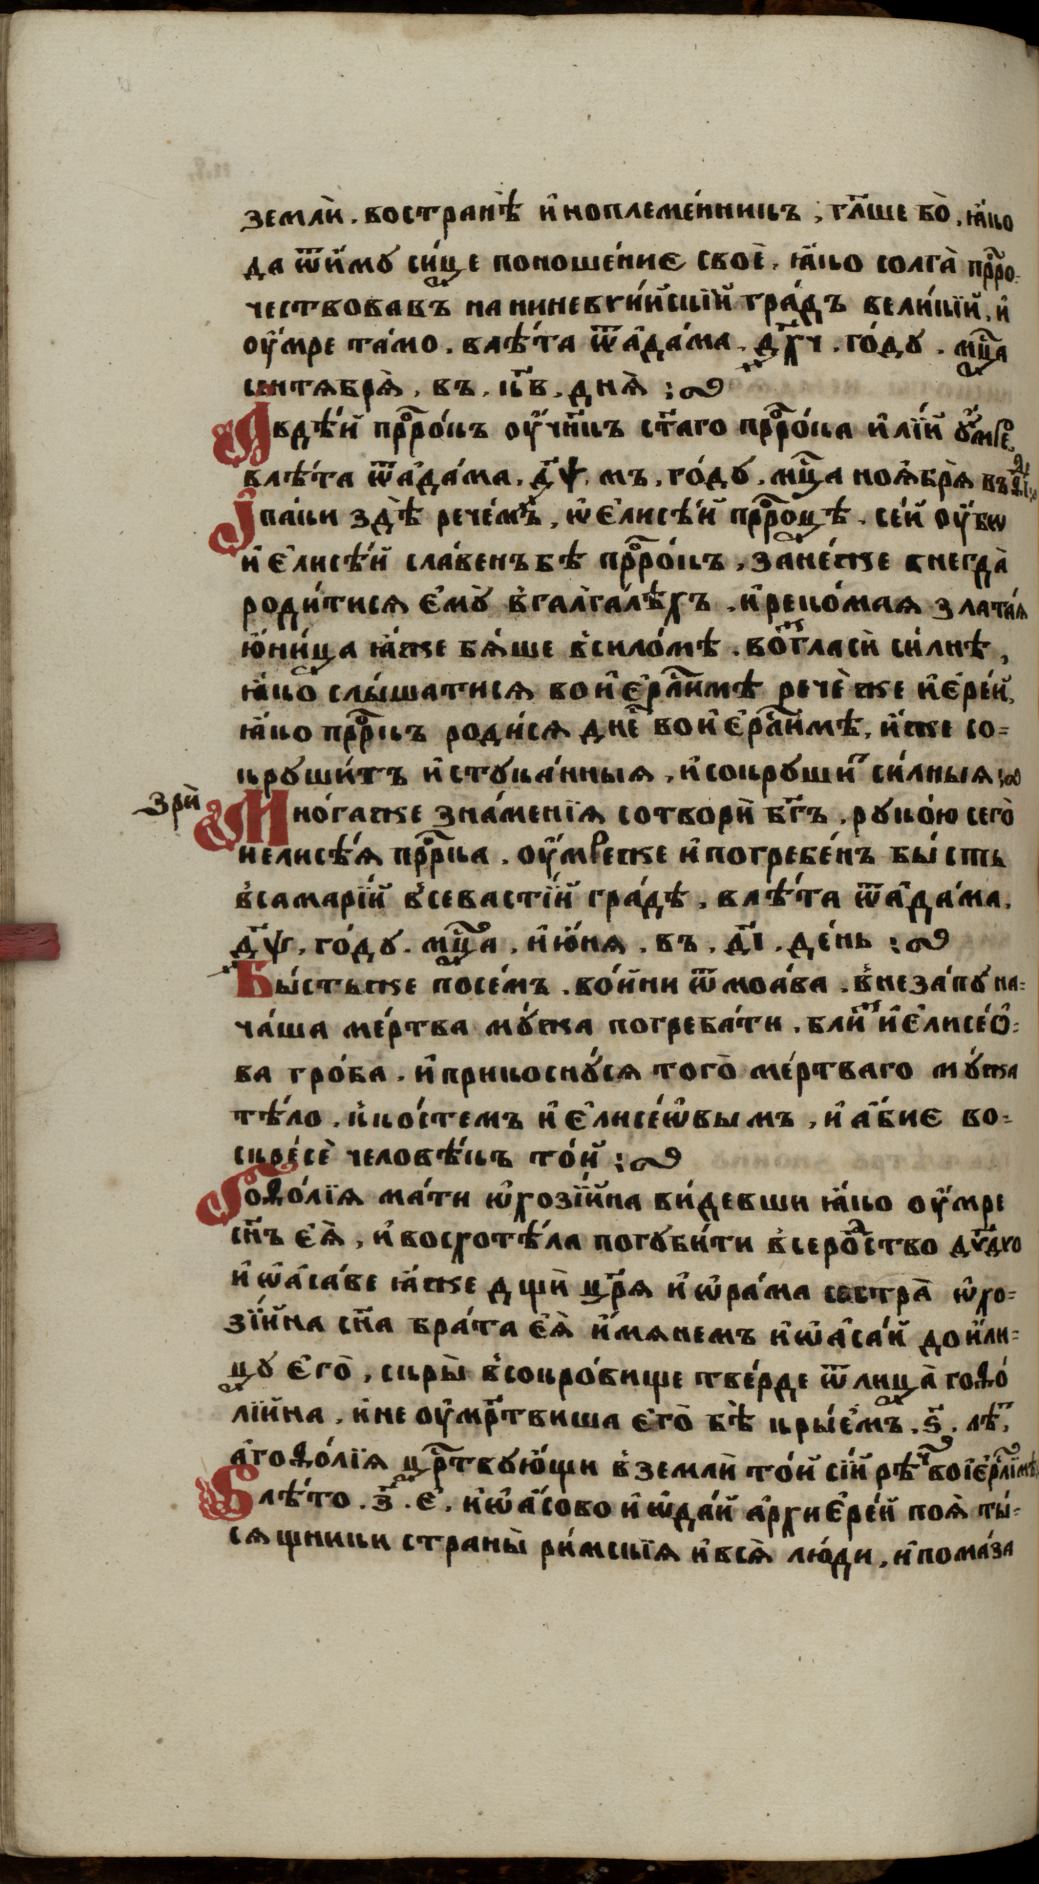 землѝ. востранѣ̀ и҆ноплеме́нникъ, гл҃ше бо̀. ꙗ҆́ко
да ѿи҆́му си́це поноше́ние своѐ. ꙗ҆́ко солга̀ прⷪ҇ро-
чествовавъ наниневги́йскїй гра́дъ вели́кїй. и҆
оу҆́мре та́мо. влѣ́та ѿа҆да́ма. го́ду. мцⷭ҇а
сентѧбрѧ̀. въ. к҃в. днѧ̀ :
А҆вдѣ́й прⷪ҇ро́къ оу҆чн҃къ ст҃аго прⷪ҇ро́ка и҆лїи́ ᲂу҆́мре.
влѣ́та ѿа҆да́ма. д҃ ѱ. мъ. го́ду. мцⷭ҇а ноѧ҆брѧ̀ въ
І҆паки здѣ̀ рече́мъ, ѡ҆ є҆лисѣ́й прⷪ҇роцѣ. се́й оу҆́бѡ
и҆ є҆лисѣ́й сла́венъ бѣ прⷪ҇ро́къ, зане́же внегда̀
роди́тисѧ є҆мꙋ̀ в҆галга́лѣхъ. и҆реко́маѧ злата́ѧ
ю҆́ница ꙗ҆́же бѧ́ше в҆сило́мѣ. возгласѝ си́лнѣ,
ꙗ҆́ко слы́шатисѧ вои҆є҆рл҃и́мѣ рече́ же и҆є҆ре́й,
ꙗ҆́ко прⷪ҇ркъ роди́сѧ дне́ вои҆є҆рл҃и́мѣ, и҆́же со-
круши́тъ и҆стука́нныѧ, и҆сокруши́тъ си́лныѧ
зрѝ
Мно́гаже зна́менїѧ сотворѝ бг҃ъ. руко́ю сего̀
и҆елисѣ́ѧ прⷪ҇рка. оу҆́мреже и҆погребе́нъ бы́сть
в҆самарїи́ в҆севастїи́ гра́дѣ, влѣ́та ѿа҆да́ма.
д҃ѱг. го́ду. мцⷭ҇а. и҆ю҆́нѧ. въ. д҃і. де́нь :
Бы́стьже посе́мъ. во́йни ѿмоа́ва. в҆незапу на-
ча́ша ме́ртва му́жа погреба́ти. бли́з и҆є҆лисе́ѻ҆-
ва гро́ба. и҆прикосну́сѧ того̀ ме́ртваго му́жа
тѣ́ло. ккосте́мъ и҆є҆лисе́ѡвымъ, и҆ а҆́бие во-
скре́сѐ человѣ́къ то́й :
Гоѳо́лїѧ ма́ти ѡ҆хозі́йна ви́девши ꙗ҆́ко оу҆́мре
сн҃ъ єѧ̀, и҆восхотѣ́ла погуби́ти в҆серо́дство дв҃дуо
и҆ ѡ҆а҆са́ве ꙗ҆́же дщѝ цр҃ѧ и҆ѡ҆ра́ма сестра̀ ѡ҆хо-
зі́йна сн҃а бра́та єѧ̀ и҆́мѧнемъ и҆ѡ҆а҆са́й доили-
цу є҆го̀, скры̀ в҆сокро́вище тве́рде ѿлица̀ гоѳо́
лїйна, и҆не оу҆мр҃твиша є҆го̀ бѣ̀ кры́емъ. ѕ҃. лѣ́т,
а҆гоѳо́лїѧ црⷭ҇тву́ющи в҆землѝ то́й сі́й рѣ́ч вої҆є҆рⷭ҇ли́мѣ,
влѣ́то. з҃. є҆. и҆ѡ҆а҆́сово и҆ ѡ҆да́й а҆рхие҆ре́й поѧ̀ ты́-
сѧщники страны̀ ри́мскїѧ и҆всѧ̀ лю́ди, и҆пома́за